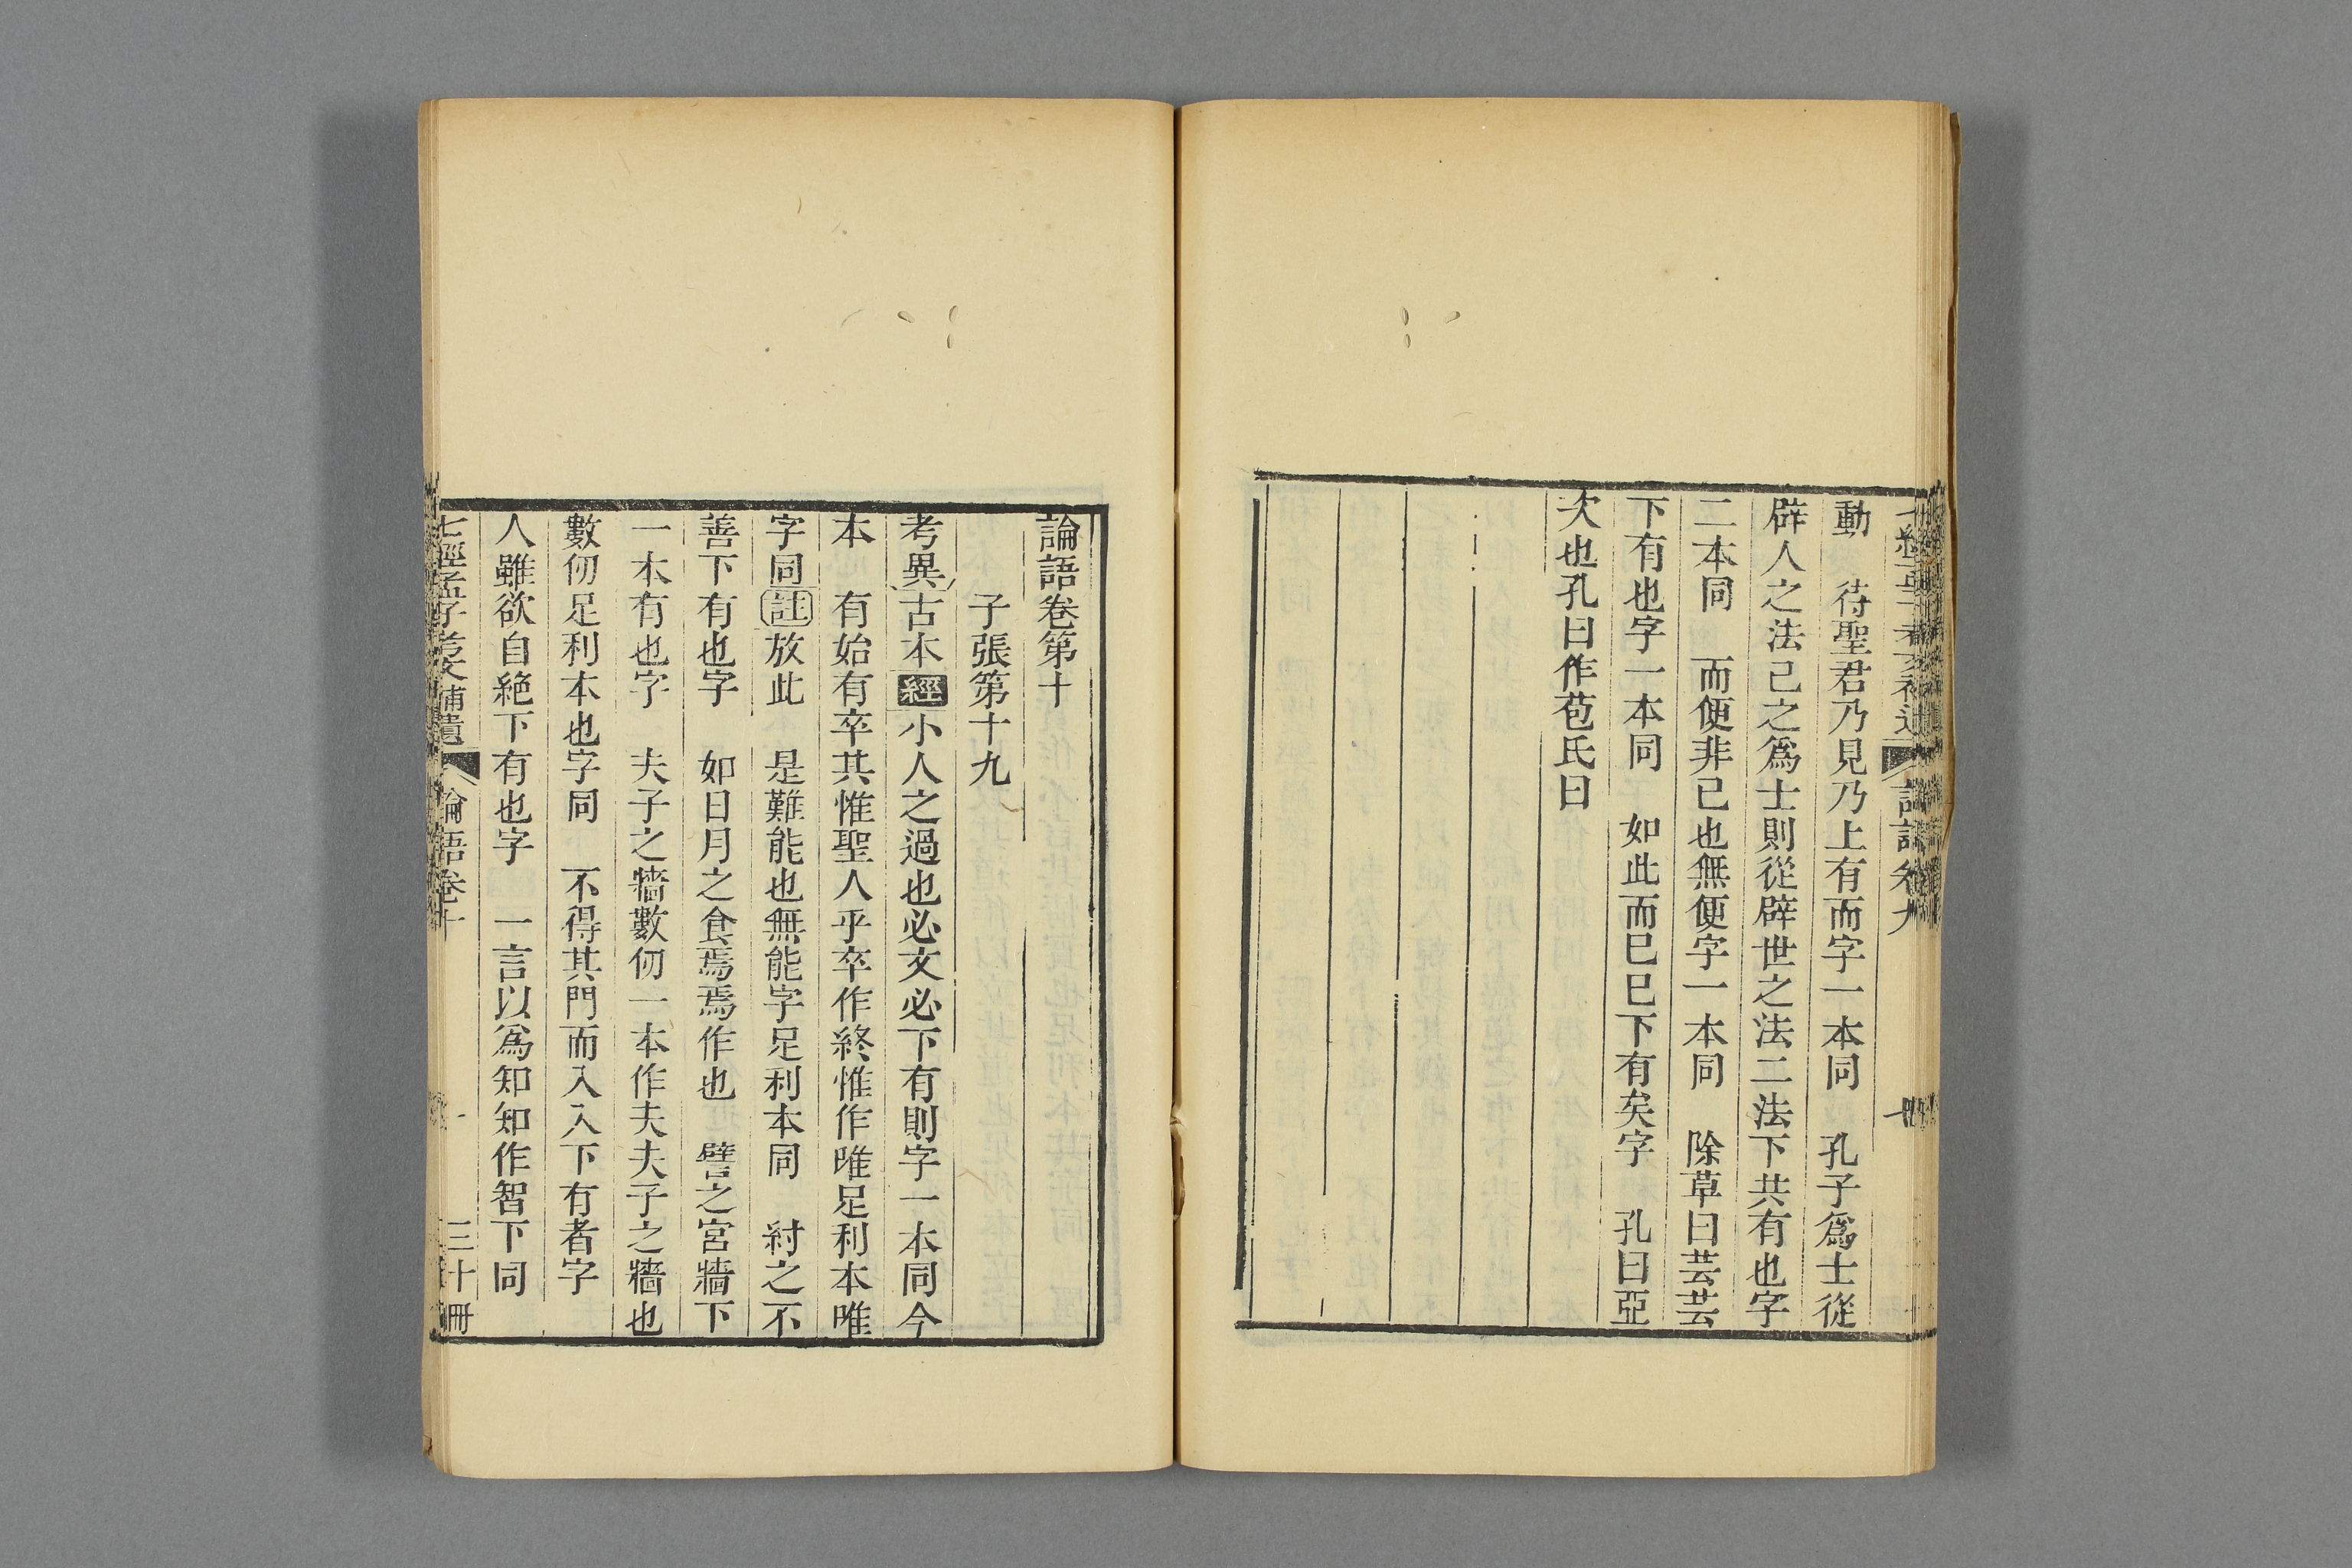 動　待聖君乃見乃上有而字一本同　孔子爲士從
辟人之法己之爲士則從辟世之法二法下共有也字
二本同　而便非己也無便字一本同　除草曰芸芸
下有也字一本同　如此而已已下有矣字　孔曰亞
次也孔曰作苞氏曰
論語卷第十
子張第十九
考異古本經小人之過也必文必下有則字一本同今
本　有始有卒其惟聖人乎卒作終惟作唯足利本唯
字同註放此　是難能也無能字足利本同　紂之不
善下有也字　如日月之食焉焉作也　譬之宮牆下
一本有也字　夫子之牆數仞一本作夫夫子之牆也
數仞足利本也字同　不得其門而入入下有者字
人雖欲自絶下有也字　一言以爲知知作智下同
七經孟子考文補遺　論語卷十　一　三十冊